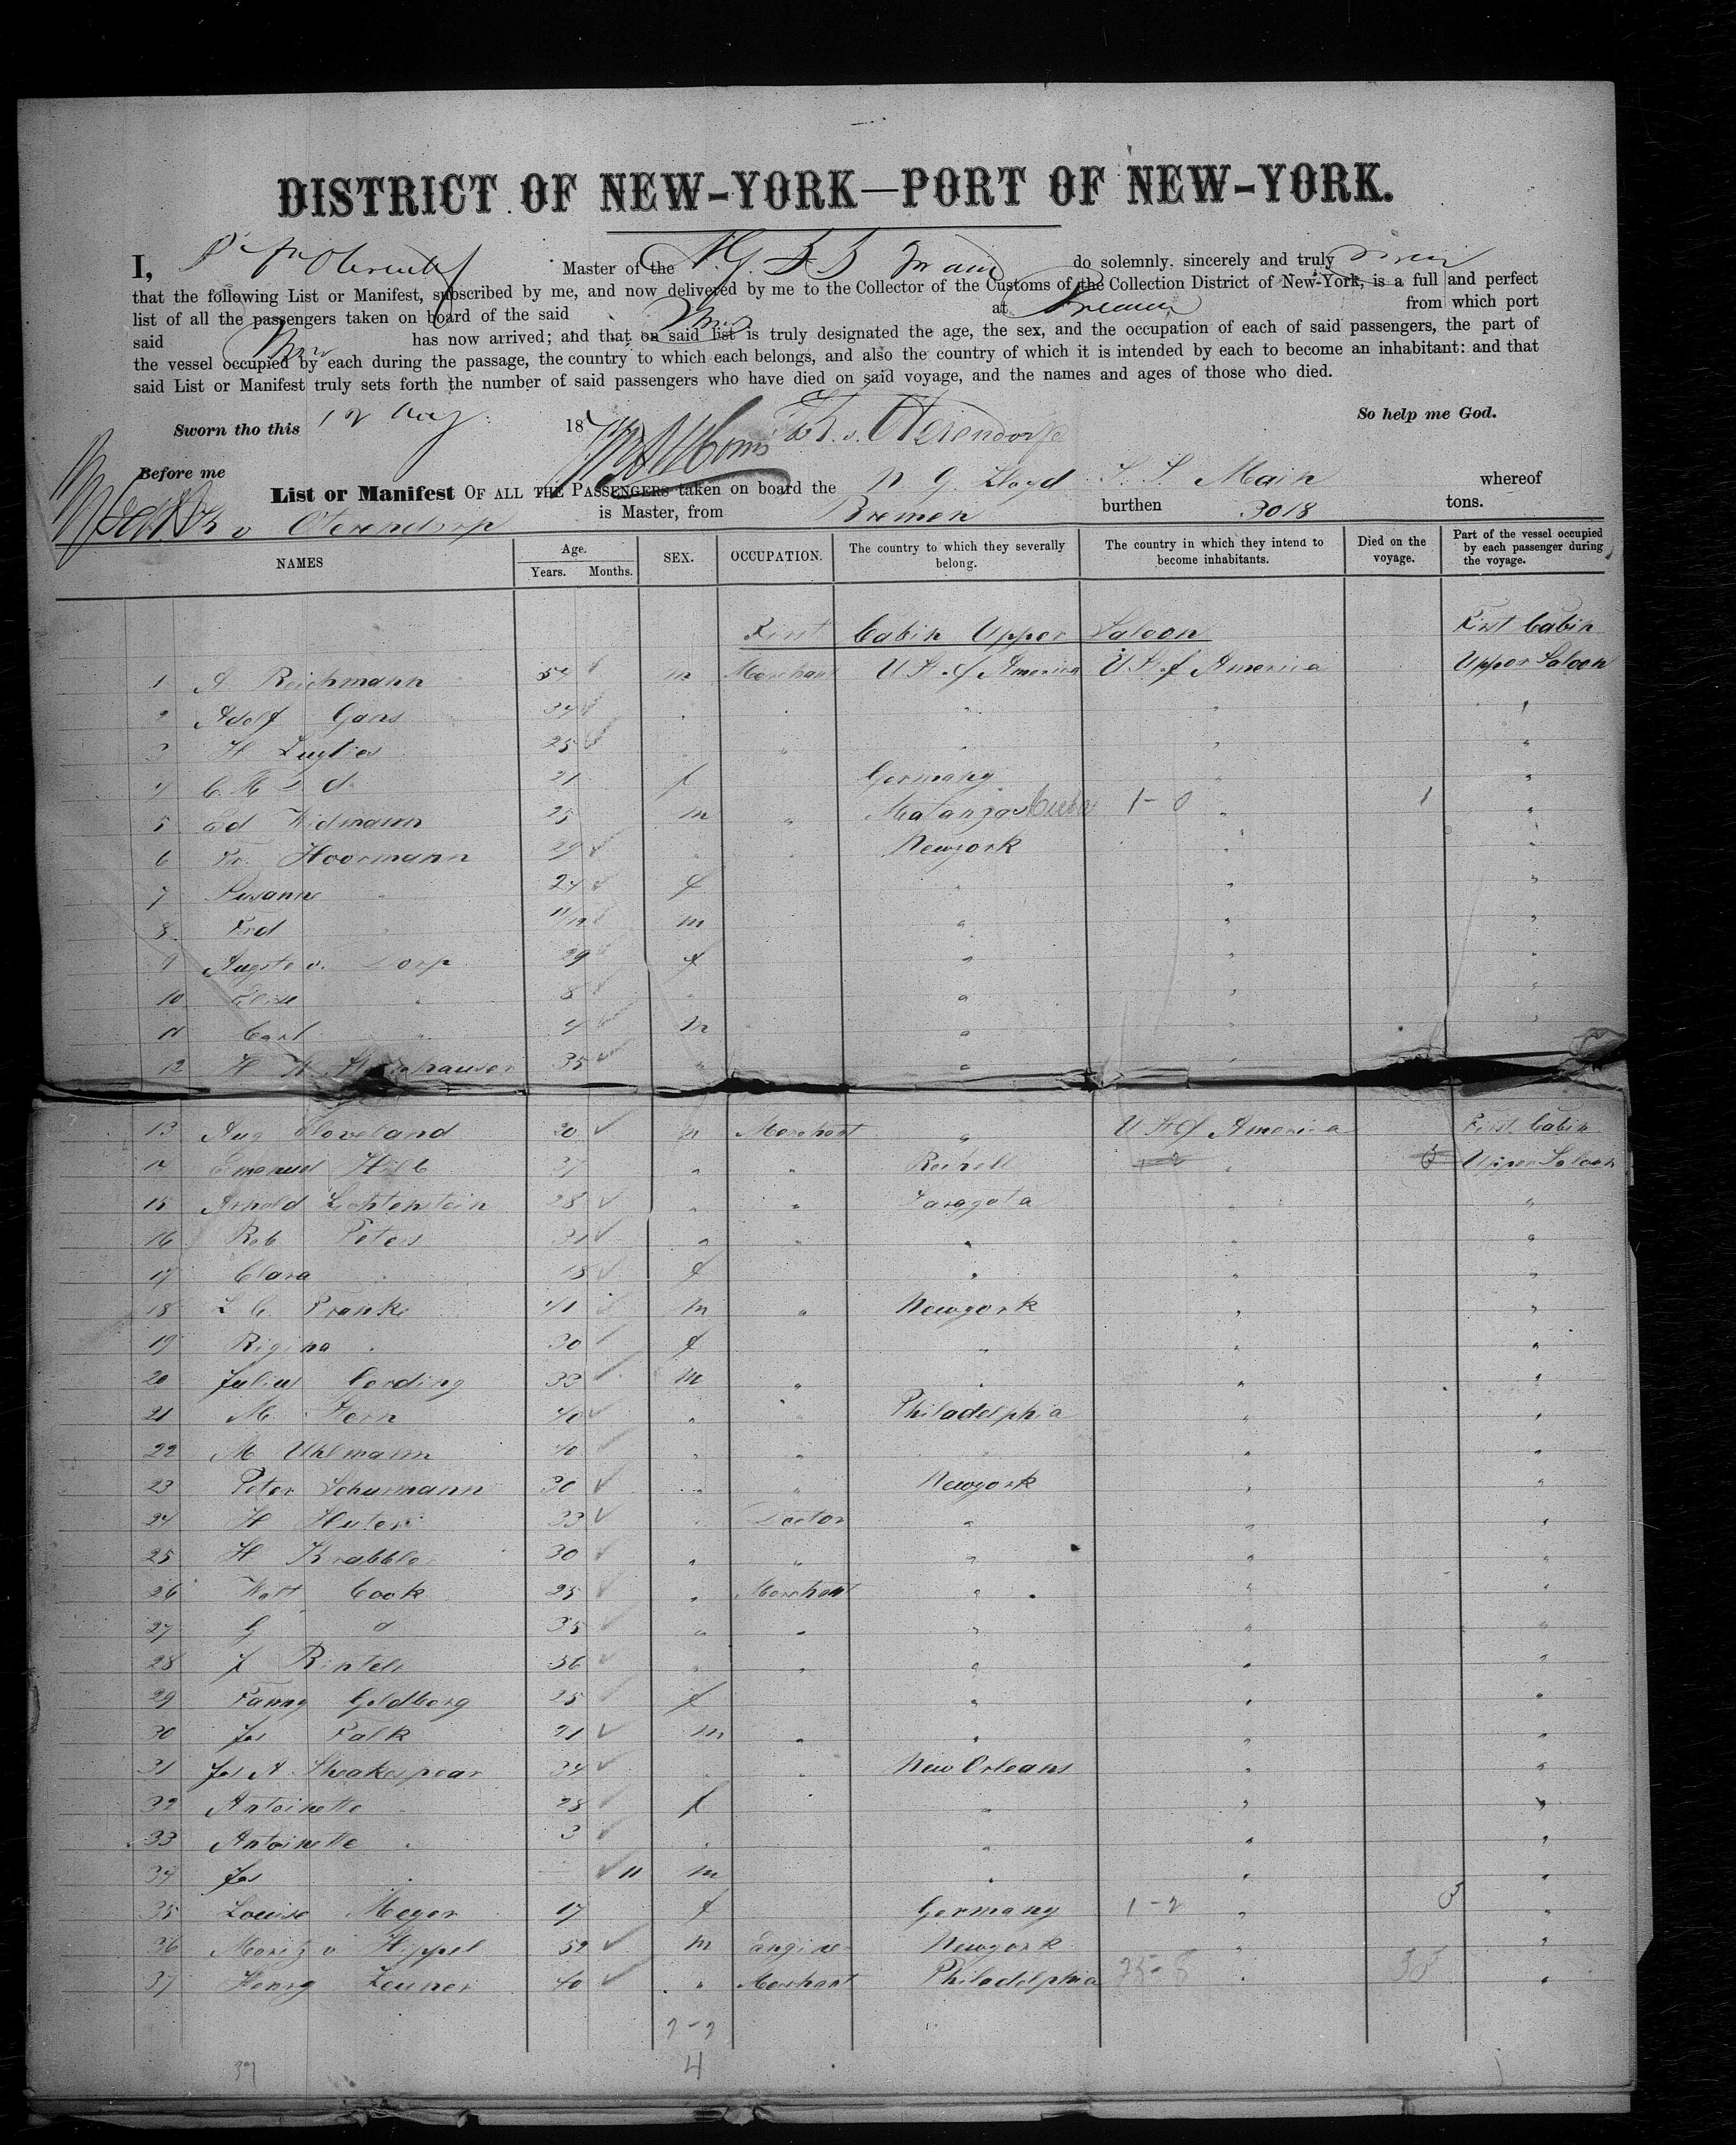 DISTRICT OF NEW-YORK—PORT OF NEW-YORK.
I, Master of the N. G. S S Main do solemnly, sincerely and truly swear
that the following List or Manifest, subscribed by me, and now delivered by me to the Collector of the Customs of the Collection District of New-York, is a full and perfect
list of all the passengers taken on board of the said at Bremen from which port
said has now arrived; and that on said list is truly designated the age, the sex, and the occupation of each of said passengers, the part of
the vessel occupied by each during the passage, the country to which each belongs, and also the country of which it is intended by each to become an inhabitant: and that
said List or Manifest truly sets forth the number of said passengers who have died on said voyage, and the names and ages of those who died.
So help me God.
Sworn tho this 12 Aug 18
Before me
List or Manifest OF ALL THE PASSENGERS taken on board the N G. Lloyd S. S. Main whereof
v Oterendorp is Master, from Bremen burthen 3018 tons.
NAMES Age. Years. Months. SEX. OCCUPATION. The country to which they severally belong. The country in which they intend to become inhabitants. Died on the voyage. Part of the vessel occupied by each passenger during the voyage.
First Cabin Upper Saloon First Cabin
1 A Reichmann 54 m Merchant U. St. of America U. St. of America Upper Saloon
2 Adolf Gans 34 " " " "
3 H 25 " " " " "
4 21 f Germany " "
5 Ed Widmann 25 m " Matanzas Cuba 1-0 " 1 "
6 Fr. Hoormann 29 " " Newyork " "
7 Susanne " 24 f " " "
8 Frd " 11/12 m " " "
9 Augste v. Dorp 29 f " " "
10 " 8 " " " "
11 Carl " 4 m " " "
12 H 35 " " "
13 Aug Cloveland 20 m Merchant " U St of America First Cabin
14 Emanuel Hilb 37 " " " Upper Saloon
15 Arnold Lichtenstein 28 " " Saragota " "
16 Rob Peters 31 " " " " "
17 Clara " 18 f " " "
18 L C. Franke 41 m " Newyork " "
19 Rigina " 30 f " " "
20 Julius Gerding 33 m " " " "
21 M Kern 40 " " Philadelphia " "
22 M Uhlmann 40 " " " " "
23 Peter Schurmann 30 " " Newyork " "
24 H Huter 33 " Doctor " " "
25 H Krabbler 30 " " " " "
26 Watt Cook 25 " Merchant " " "
27 G d 35 " " " " "
28 J Rintels 36 " " " " "
29 Fanny Goldberg 25 f " " "
30 Jos Falk 21 m " " " "
31 Jos A Sheakespear 34 " " New Orleans " "
32 Antoinette " 28 f " " "
33 Antoinette " 3 " " " "
34 Jos " 11 m " " "
35 Louise Meyer 17 f Germany 1-2 " "
36 Moritz v Hippel 52 m Engine Newyork " "
37 Henry Zeuner 40 " Merchant Philadelphia " "
4